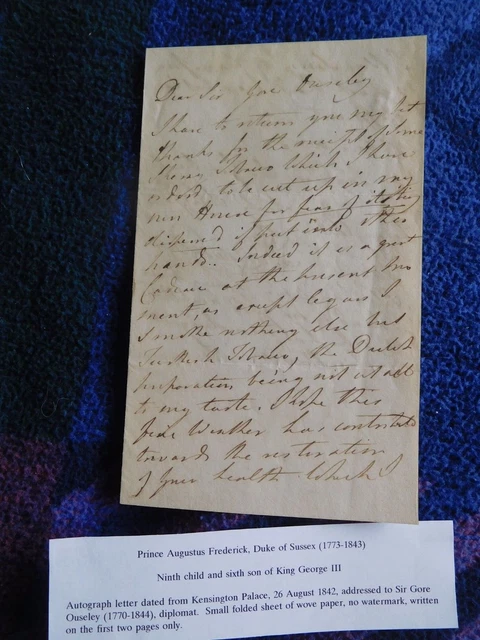 Dear Sir Gore Ouseley
I have to return you my best
thanks for the receipt of some
Tobacco which I have
orderd to be cut up in my
own House for fear of its being
if put into other
hands. Indeed it is a great
at the present mo
ment, as except Cegars I
smoke nothing else but
Turkish Tobacco, the Dutch
preparation being not at all
to my taste. I hope this
fine Weather has contributed
towards the restoration
of your health which I
Prince Augustus Frederick, Duke of Sussex (1773-1843)
Ninth child and sixth son of King George III
Autograph letter dated from Kensington Palace, 26 August 1842, addressed to Sir Gore
Ouseley (1770-1844), diplomat. Small folded sheet of wove paper, no watermark, written
on the first two pages only.